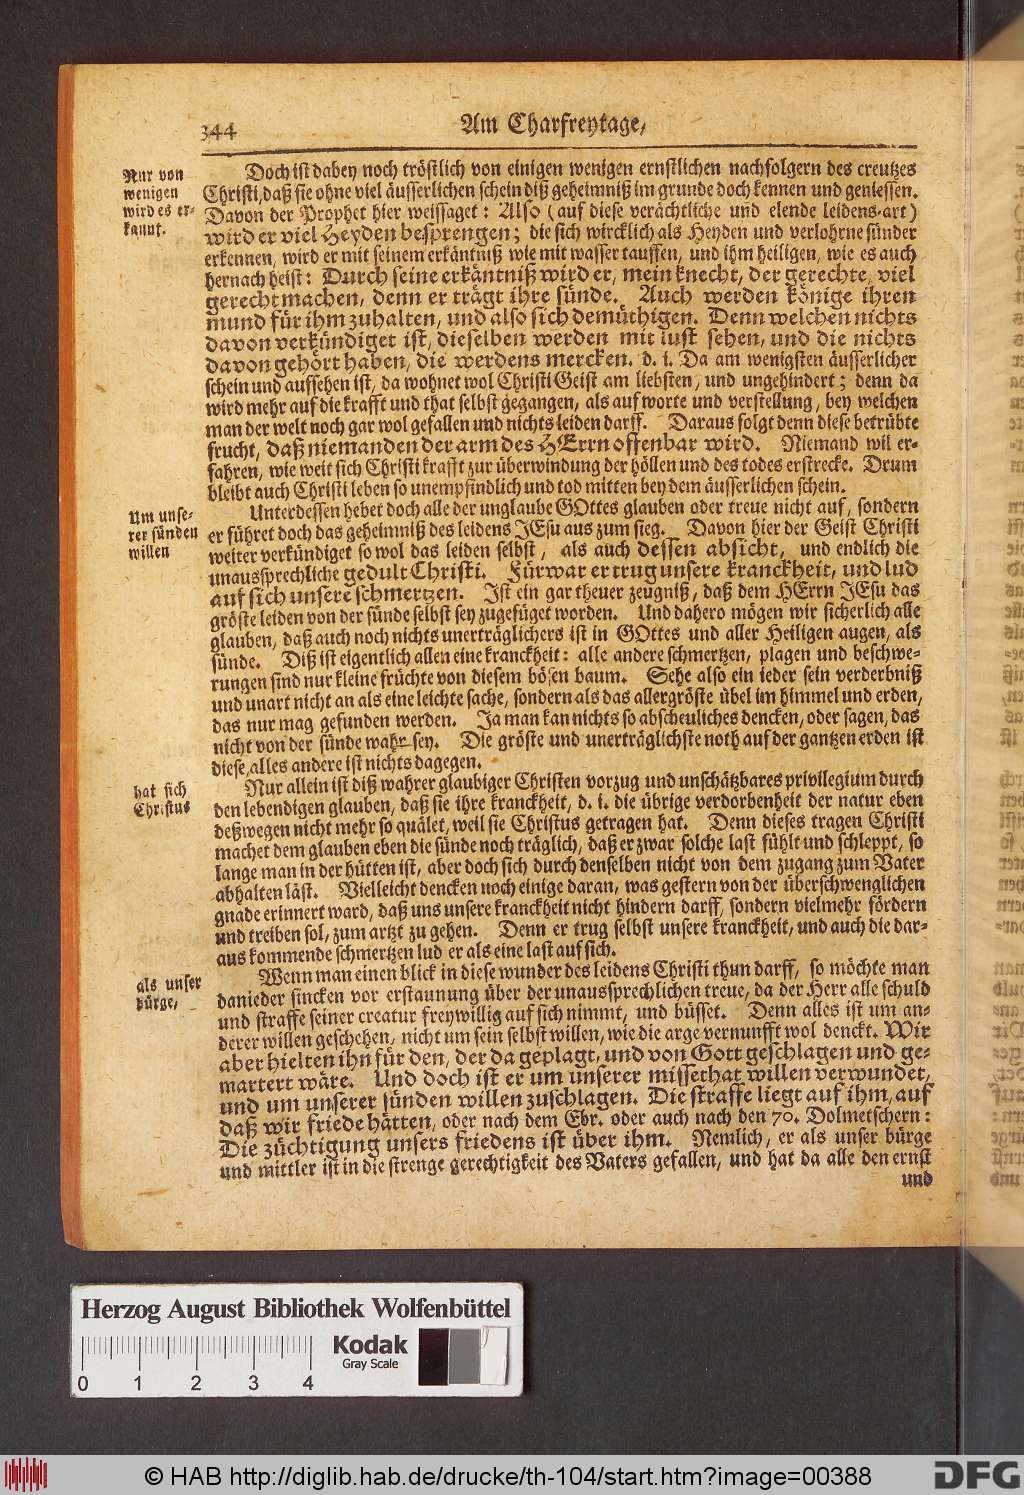 344
Am Charfreytage,
Nur von
wenigen
wird es er-
kannt.
Doch ist dabey noch tröstlich von einigen wenigen ernstlichen nachfolgern des creutzes
Christi, daß sie ohne viel äusserlichen schein diß geheimniß im grunde doch kennen und geniessen.
Davon der Prophet hier weissaget: Also (auf diese verächtliche und elende leidens-art)
wird er viel Heyden besprengen; die sich wircklich als Heyden und verlohrne sünder
erkennen, wird er mit seinem erkäntniß wie mit wasser tauffen, und ihm heiligen, wie es auch
hernach heist: Durch seine erkäntniß wird er, mein knecht, der gerechte, viel
gerecht machen, denn er trägt ihre sünde. Auch werden könige ihren
mund für ihm zuhalten, und also sich demüthigen. Denn welchen nichts
davon verkündiget ist, dieselben werden mit lust sehen, und die nichts
davon gehört haben, die werdens mercken. d. i. Da am wenigsten äusserlicher
schein und aufsehen ist, da wohnet wol Christi Geist am liebsten, und ungehindert; denn da
wird mehr auf die krafft und that selbst gegangen, als auf worte und verstellung, bey welchen
man der welt noch gar wol gefallen und nichts leiden darff. Daraus folgt denn diese betrübte
frucht, daß niemanden der arm des HErrn offenbar wird. Niemand wil er-
fahren, wie weit sich Christi krafft zur überwindung der höllen und des todes erstrecke. Drum
bleibt auch Christi leben so unempfindlich und tod mitten bey dem äusserlichen schein.
Um unse-
rer sünden
willen
Unterdessen hebet doch alle der unglaube GOttes glauben oder treue nicht auf, sondern
er führet doch das geheimniß des leidens JEsu aus zum sieg. Davon hier der Geist Christi
weiter verkündiget so wol das leiden selbst, als auch dessen absicht, und endlich die
unaussprechliche gedult Christi. Fürwar er trug unsere kranckheit, und lud
auf sich unsere schmertzen. Ist ein gar theuer zeugniß, daß dem HErrn JEsu das
gröste leiden von der sünde selbst sey zugefüget worden. Und dahero mögen wir sicherlich alle
glauben, daß auch noch nichts unerträglichers ist in GOttes und aller Heiligen augen, als
sünde. Diß ist eigentlich allen eine kranckheit: alle andere schmertzen, plagen und beschwe-
rungen sind nur kleine früchte von diesem bösen baum. Sehe also ein ieder sein verderbniß
und unart nicht an als eine leichte sache, sondern als das allergröste übel im himmel und erden,
das nur mag gefunden werden. Ja man kan nichts so abscheuliches dencken, oder sagen, das
nicht von der sünde wahr sey. Die gröste und unerträglichste noth auf der gantzen erden ist
diese, alles andere ist nichts dagegen.
hat sich
Christus
Nur allein ist diß wahrer glaubiger Christen vorzug und unschätzbares privilegium durch
den lebendigen glauben, daß sie ihre kranckheit, d. i. die übrige verdorbenheit der natur eben
deßwegen nicht mehr so quälet, weil sie Christus getragen hat. Denn dieses tragen Christi
machet dem glauben eben die sünde noch träglich, daß er zwar solche last fühlt und schleppt, so
lange man in der hütten ist, aber doch sich durch denselben nicht von dem zugang zum Vater
abhalten läst. Vielleicht dencken noch einige daran, was gestern von der überschwenglichen
gnade erinnert ward, daß uns unsere kranckheit nicht hindern darff, sondern vielmehr fördern
und treiben sol, zum artzt zu gehen. Denn er trug selbst unsere kranckheit, und auch die dar-
aus kommende schmertzen lud er als eine last auf sich.
als unser
bürge,
Wenn man einen blick in diese wunder des leidens Christi thun darff, so möchte man
danieder sincken vor erstaunung über der unaussprechlichen treue, da der Herr alle schuld
und straffe seiner creatur freywillig auf sich nimmt, und büsset. Denn alles ist um an-
derer willen geschehen, nicht um sein selbst willen, wie die arge vernunfft wol denckt. Wir
aber hielten ihn für den, der da geplagt, und von Gott geschlagen und ge-
martert wäre. Und doch ist er um unserer missethat willen verwundet,
und um unserer sünden willen zuschlagen. Die straffe liegt auf ihm, auf
daß wir friede hätten, oder nach dem Ebr. oder auch nach den 70. Dolmetschern:
Die züchtigung unsers friedens ist über ihm. Nemlich, er als unser bürge
und mittler ist in die strenge gerechtigkeit des Vaters gefallen, und hat da alle den ernst
und
Herzog August Bibliothek Wolfenbüttel
Kodak
Gray Scale
0 1 2 3 4
© HAB http://diglib.hab.de/drucke/th-104/start.htm?image=00388
DFG